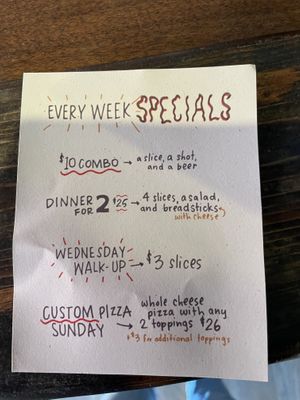 EVERY WEEK SPECIALS
$10 COMBO → a slice, a shot,
and a beer
DINNER FOR 2 $25 → 4 slices, a salad,
and breadsticks
with cheese
WEDNESDAY
WALK-UP → $3 slices
CUSTOM PIZZA
SUNDAY → whole cheese
pizza with any
2 toppings $26
+$3 for additional toppings